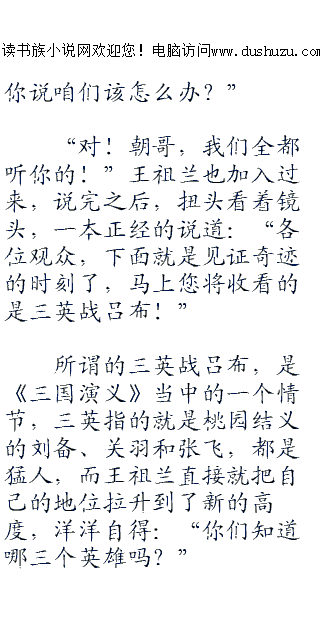 读书族小说网欢迎您！电脑访问www.dushuzu.com
你说咱们该怎么办？”
“对！朝哥，我们全都
听你的！”王祖兰也加入过
来，说完之后，扭头看着镜
头，一本正经的说道：“各
位观众，下面就是见证奇迹
的时刻了，马上您将收看的
是三英战吕布！”
所谓的三英战吕布，是
《三国演义》当中的一个情
节，三英指的就是桃园结义
的刘备、关羽和张飞，都是
猛人，而王祖兰直接就把自
己的地位拉升到了新的高
度，洋洋自得：“你们知道
哪三个英雄吗？”